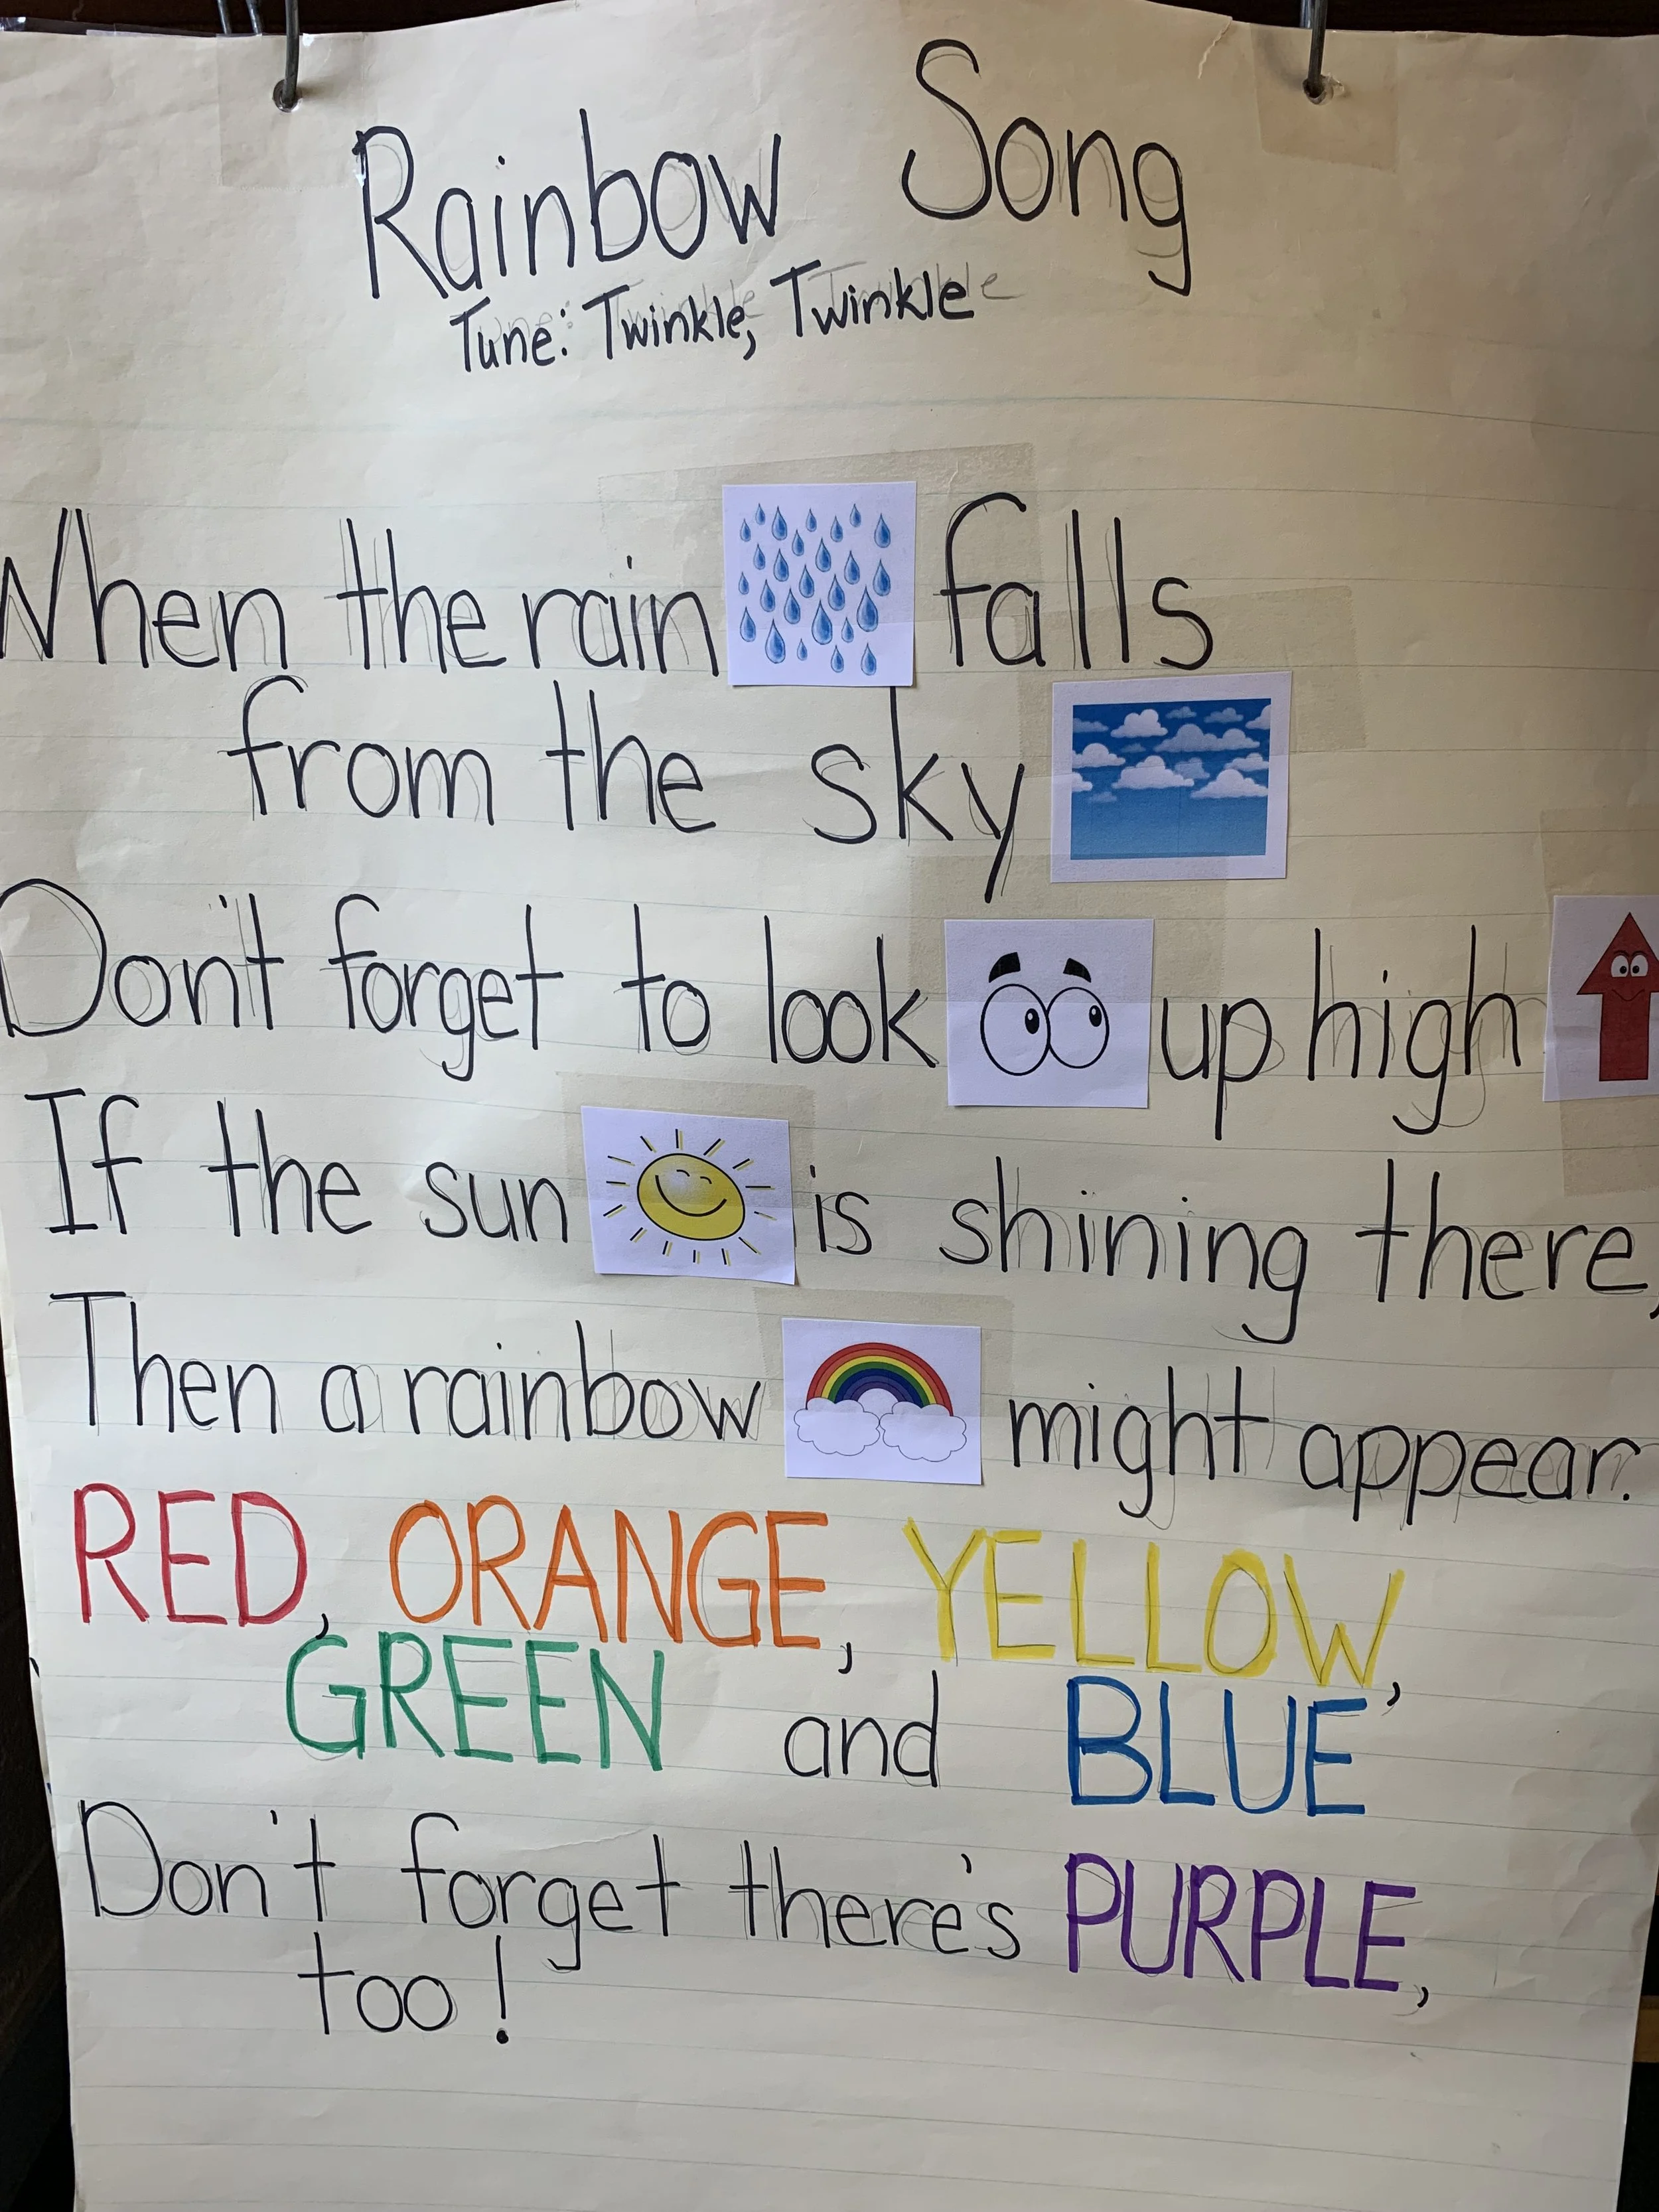 Rainbow Song
Tune: Twinkle, Twinkle
When the rain falls
from the sky
Don't forget to look up high
If the sun is shining there,
Then a rainbow might appear.
RED, ORANGE, YELLOW,
GREEN and BLUE
Don't forget there's PURPLE,
too!